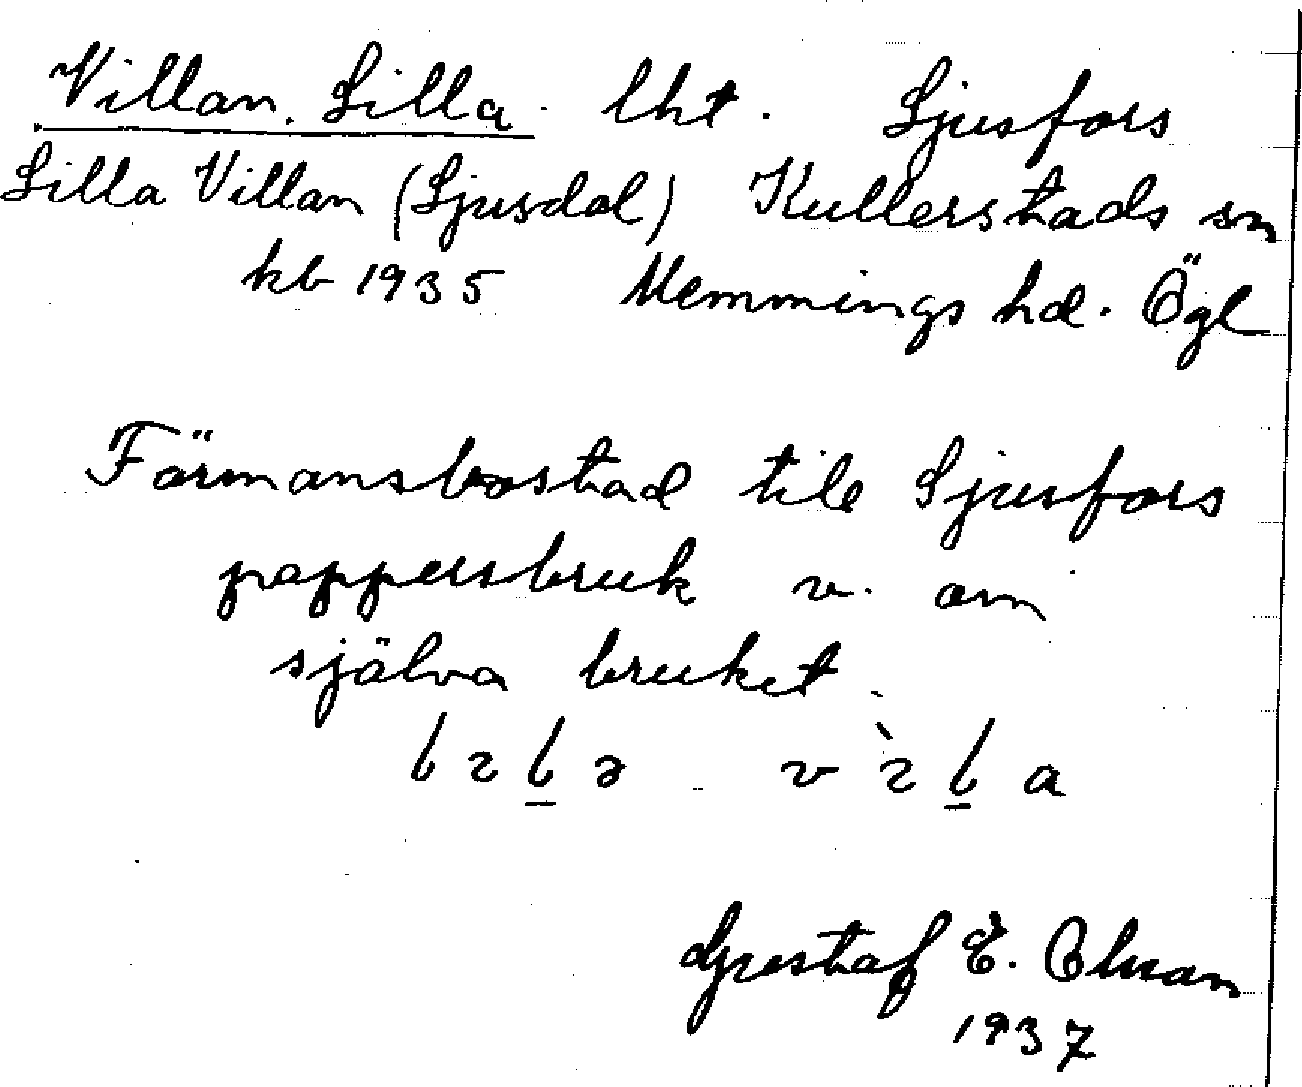 Villan, Lilla lht. Ljusfors
Lilla Villan (Ljusdal) Kullerstads sn
kb 1935 Memmings hd. Ögl
Förmansbostad till Ljusfors
pappersbruk v. om
själva bruket.
Gustaf E. Olsson
1937